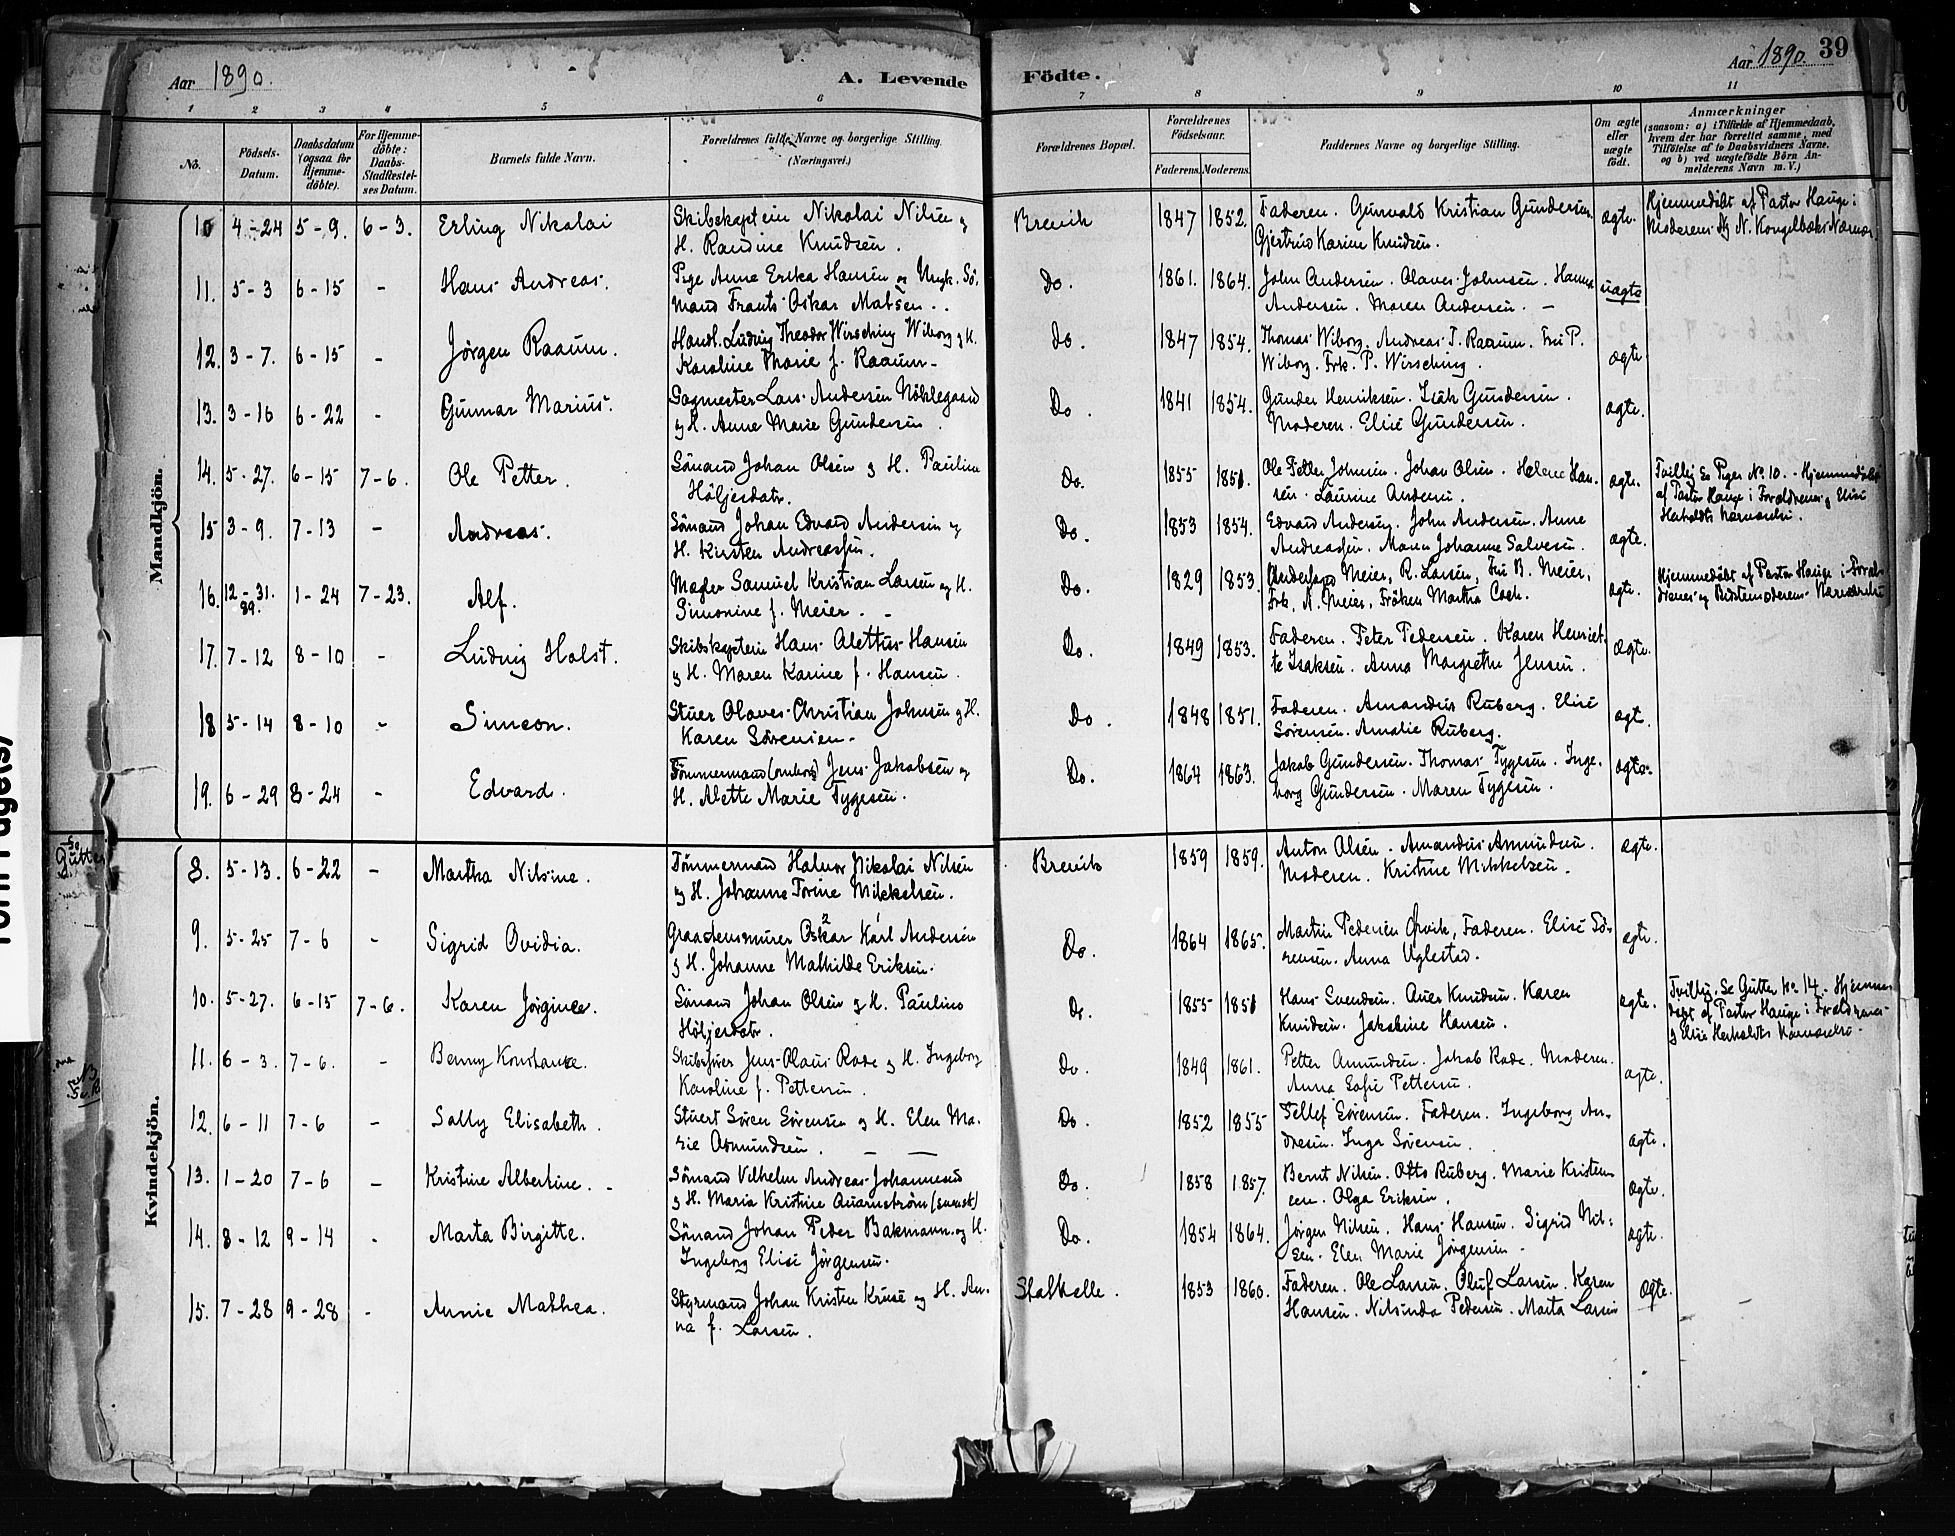 Aar 1890.
A. Levende
Födte.
Aar 1890.
39
1 2 3 4 5 6 7 8 9 10 11
No.
Födsels-Datum.
Daabsdatum (ogsaa for Hjemme-döbte).
For Hjemme-döbte: Daabs-Stadfæstel-ses Datum.
Barnets fulde Navn.
Forældrenes fulde Navne og borgerlige Stilling.
(Næringsvei.)
Forældrenes Bopæl.
Forældrenes Födselsaar.
Faderens. Moderens.
Faddernes Navne og borgerlige Stilling.
Om ægte eller uægte födt.
Anmærkninger
(saasom: a) i Tilfælde af Hjemmedaab, hvem der har forrettet samme, med Tilföielse af to Daabsvidners Navne, og b) ved uægtefödte Börn An-melderens Navn m. V.)
Mandkjön.
10 4-24 5-9. 6-3. Erling Nikolai Skibskaptein Nikolai Nilsen og Brevik 1847 1852. Faderen. Gunvald Kristian Gundersen. ægte. Hjemmedöbt af Pastor Hauge i
H. Randine Knudsen. Gjertrud Karine Knudsen. Moderens og N. Kongelbæks Nærvær.
11. 5-3 6-15 - Hans Andreas. Pige Anne Erika Hansen og Ungk. Sö. Do. 1861. 1864. John Andersen. Olaves Johnsen. Hanna uægte
mand Frants Oskar Matsen. Andersen. Maren Andersen. -
12. 3-7. 6-15 - Jörgen Raaum. Handl. Ludvig Theodor Wirsching Wiborg og H. Do. 1847 1854. Thomas Wiborg. Andreas T. Raaum. Fru P. ægte
Karoline Marie f. Raaum - Wiborg. Frk. P. Wirsching.
13. 3-16 6-22 - Gunnar Marius. Sagmester Lars Andersen Nöklegaard Do. 1841 1854. Gunder Henriksen. Isak Gundersen. ægte.
og H. Anne Marie Gundersen. Moderen. Elise Gundersen.
14. 5-27. 6-15 7-6. Ole Petter. Sömand Johan Olsen og H. Pauline Do. 1855 1851. Ole Petter Johnsen. Johan Olsen. Helene Han- ægte. Tvilling Se Piger No. 10. - Hjemmedöbt
Höljesdatr. sen. Laurine Andersen. af Pastor Hauge i Forældrenes og Elise
Herholdts Nærværelse.
15 3-9. 7-13 - Andreas. Sömand Johan Edvard Andersen og Do. 1853 1854. Edvard Andersen. John Andersen. Anne ægte.
H. Kirsten Andreassen. Andreassen. Maren Johanne Salvesen.
16. 12-31. 89. 1-24 7-23. Alf. Mægler Samuel Kristian Larsen og H. Do. 1829 1853. Meier, R. Larsen, Fru B. Meier, ægte. Hjemmedöbt af Pastor Hauge i Foræl-
Simonine f. Meier. - Frk. N. Meier, Fröken Martha Cock. drenes og Bedstemoderens Nærværelse
17. 7-12 8-10 - Ludvig Holst. Skibskaptein Hans Alettus Hansen Do. 1849 1853. Faderen. Peter Pedersen. Karen Henriet- ægte.
og H. Maren Karine f. Hansen. te Isaksen. Anna Margrethe Jensen.
18 5-14 8-10 - Simeon. Stuer Olaves Christian Johnsen og H. Do. 1848 1851. Faderen. Amandus Ruberg. Elise ægte.
Karen Sörensen - Sörensen. Amalie Ruberg.
19. 6-29 8-24 - Edvard. Tömmermand (ombord) Jens Jakobsen og Do. 1864 1863. Jakob Gundersen. Thomas Tygesen. Inge- ægte.
H. Alette Marie Tygesen. borg Gundersen. Maren Tygesen.
Kvindekjön.
8. 5-13. 6-22 - Martha Nilsine. Tömmermand Halvor Nikolai Nilsen Brevik 1859 1859. Anton Olsen. Amandus Amundsen. ægte.
og H. Johanne Torine Mikkelsen. Moderen. Kristine Mikkelsen.
9. 5-25 7-6 - Sigrid Ovidia. Graastensmurer Oskar Karl Andersen Do. 1864 1865. Martin Pedersen Örvik, Faderen. Elise Sö- ægte.
og H. Johanne Mathilde Eriksen. rensen. Anna Uglestad.
10. 5-27. 6-15 7-6. Karen Jörgine. Sömand Johan Olsen og H. Pauline Do. 1855 1851 Hans Svendsen. Aner Knudsen. Karen ægte. Tvilling. Se Gutter No. 14. Hjemme-
Höljesdatr. Knudsen. Jakobine Hansen. döbt af Pastor Hauge i Forældrenes
og Elise Herholdts Nærværelse.
11. 6-3. 7-6. - Benny Konstance. Skibsförer Jens Olaus Rode og H. Ingeborg Do. 1849 1861. Petter Amundsen. Jakob Rode. Moderen. ægte.
Karoline f. Pettersen. Anna Sofie Pettersen.
12. 6-11 7-6 - Sally Elisabeth. Stuert Sören Sörensen og H. Elen Ma- Do. 1852 1855 Tellef Sörensen. Faderen. Ingeborg An- ægte.
rie Asmundsen. - - dresen. Inga Sörensen.
13. 1-20 7-6 - Kristine Albertine. - Sömand Vilhelm Andreas Johannesen Do. 1858 1857. Bernt Nilsen. Otto Ruberg. Marie Kristen- ægte.
og H. Maria Kristine Quarnström (svensk) sen. Olga Eriksen.
14. 8-12 9-14 - Marta Birgitte. Sömand Johan Peder Bakmann og H. Do. 1854 1864. Jörgen Nilsen. Hans Hansen. Sigrid Nil- ægte.
Ingeborg Elise Jörgensen. sen. Elen Marie Jörgensen -
15. 7-28 9-28 - Annie Mathea. Styrmand Johan Kristen Kruse og H. An- Stathelle. 1853 1860. Faderen. Ole Larsen. Oluf Larsen. Karen ægte.
na f. Larsen. Hansen. Nilsinda Pedersen. Marta Larsen